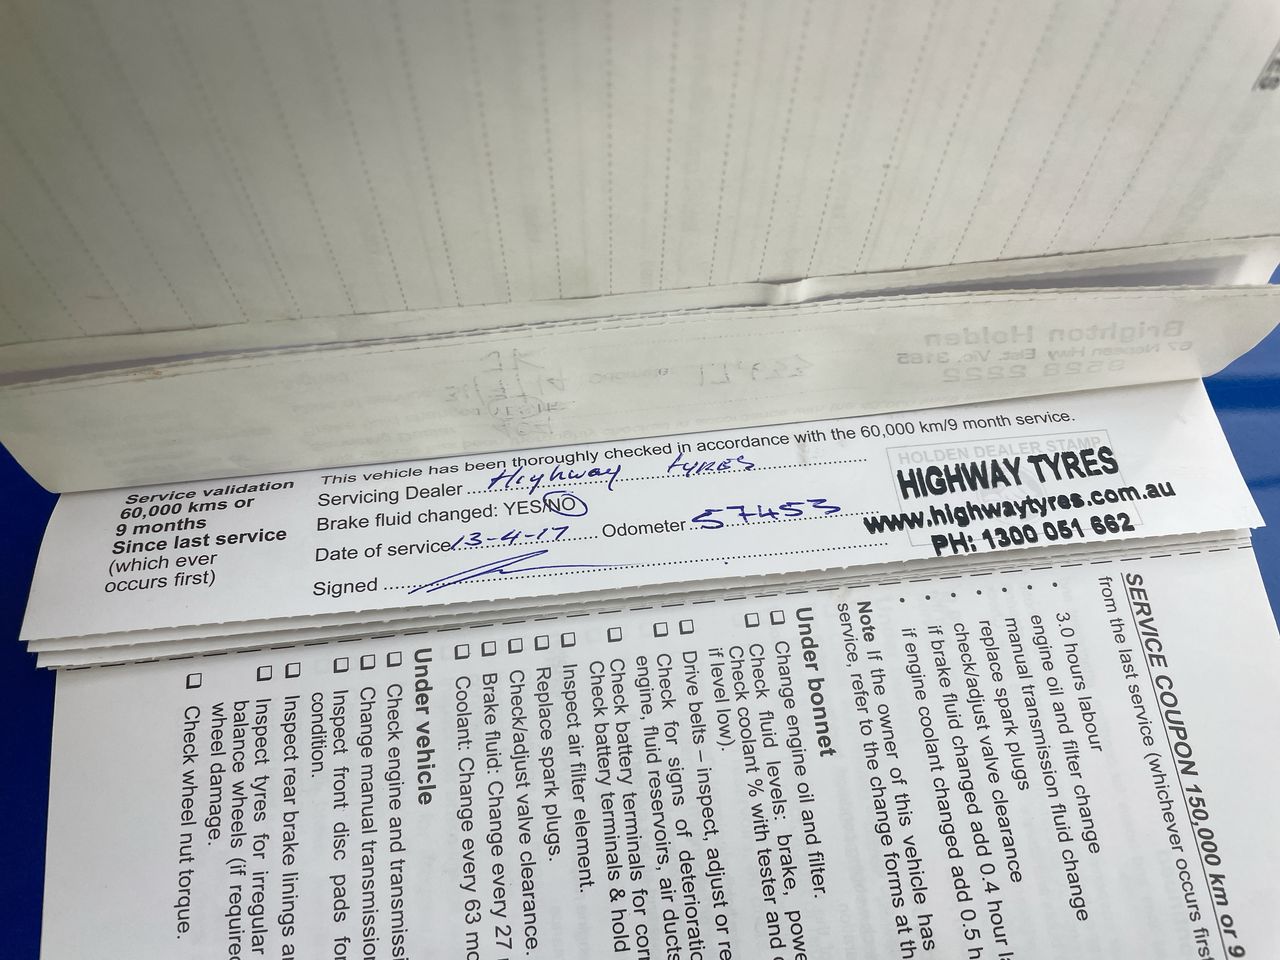 Brighton Holden
67 Nepean Hwy Elst. Vic. 3185
9528 2222
Service validation
60,000 kms or
9 months
Since last service
(which ever
occurs first)
This vehicle has been thoroughly checked in accordance with the 60,000 km/9 month service.
Servicing Dealer Highway tyres
Brake fluid changed: YES/NO
Date of service 13-4-17 Odometer 57453
Signed
HOLDEN DEALER STAMP
HIGHWAY TYRES
www.highwaytyres.com.au
PH: 1300 051 662
SERVICE COUPON 150,000 km or 9
from the last service (whichever occurs first
• 3.0 hours labour
• engine oil and filter change
• manual transmission fluid change
• replace spark plugs
• check/adjust valve clearance
• if brake fluid changed add 0.4 hour
• if engine coolant changed add 0.5 h
Note If the owner of this vehicle has
service, refer to the change forms at th
Under bonnet
❑ Change engine oil and filter.
❑ Check fluid levels: brake, powe
Check coolant % with tester and
if level low).
❑ Drive belts – inspect, adjust or re
❑ Check for signs of deterioratio
engine, fluid reservoirs, air ducts
❑ Check battery terminals for corr
Check battery terminals & hold
❑ Inspect air filter element.
❑ Replace spark plugs.
❑ Check/adjust valve clearance.
❑ Brake fluid: Change every 27
❑ Coolant: Change every 63 mo
Under vehicle
❑ Check engine and transmissi
❑ Change manual transmission
❑ Inspect front disc pads for
condition.
❑ Inspect rear brake linings a
❑ Inspect tyres for irregular
balance wheels (if required
wheel damage.
❑ Check wheel nut torque.